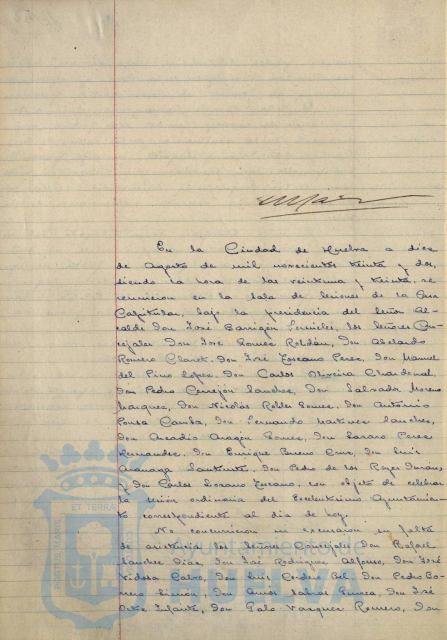 En la Ciudad de Huelva a diez
de Agosto de mil novecientos treinta y dos,
siendo la hora de las veintiuna y treinta, se
reunieron en la Sala de Sesiones de la Casa
Capitular, bajo la presidencia del Señor Al-
calde Don José Barrigón Fornieles, los Señores Con-
cejales Don José Ponce Roldán, Don Abelardo
Romero Claret, Don José Toscano Perez, Don Manuel
del Pino Lopez, Don Carlos Oliveira Chardenal,
Don Pedro Cerrejón Sanchez, Don Salvador Moreno
Marquez, Don Nicolás Robles Gomez, Don Antonio
Pousa Camba, Don Fernando Martinez Sanchez,
Don Arcadio Aragón Gomez, Don Lazaro Perez
Hernandez, Don Enrique Bueno Cruz, Don Luis
Don Pedro de los Reyes
y Don Carlos Lozano Lozano, con objeto de celebrar
la sesión ordinaria del Excelentísimo Ayuntamien-
to correspondiente al día de hoy.
No concurrieron ni excusaron su falta
de asistencia los Señores Concejales Don Rafael
Sanchez Diaz, Don José Rodriguez Alfonso, Don José
Vidosa Calvo, Don Luis Cordero Bel, Don Pedro Bo-
rrero Limón, Don Amós Sabrás Gurrea, Don José
Ortiz Infante, Don Galo Vazquez Romero, Don
ET TERRAE
Ayuntamiento de
HUELVA